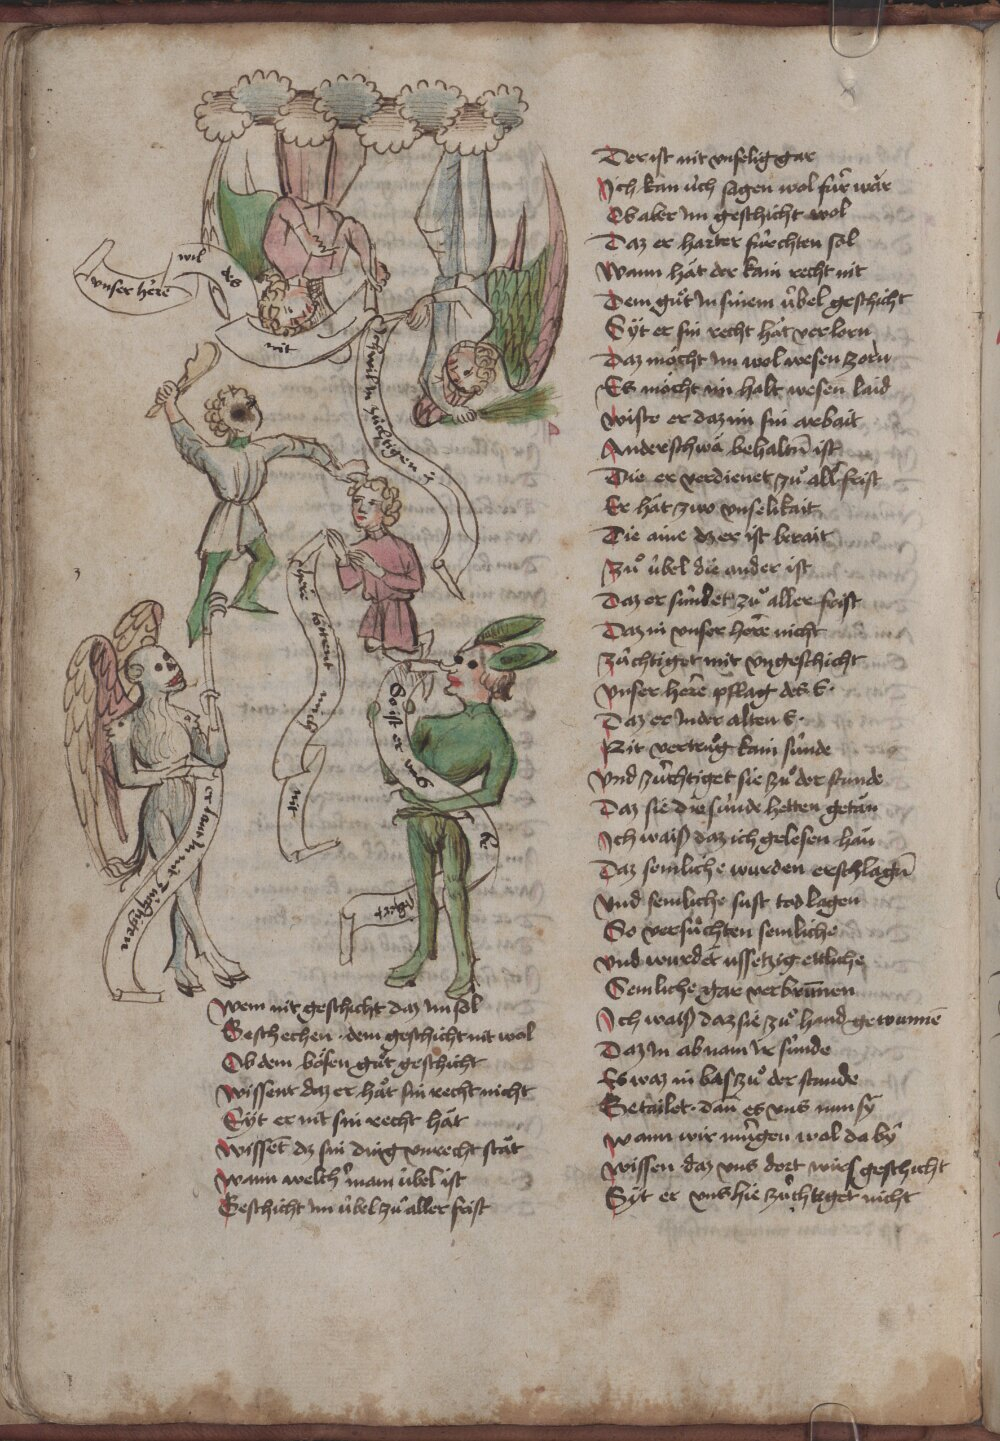 vnser here wil des nit
Ich wil in züchtigen
here totent mich nit
So ist er vns
er laut in nit züchtigen
Wem nit geschicht daz im sol
Geschechen · dem geschicht nit wol
Ob dem bösen gůt geschicht
Wissent daz er hăt sin recht nicht
Syt er nit sin recht hăt
Wissēt dz sin ding vnrecht stăt
Wann welch man übel ist
Geschicht im übel zů aller frist
Der ist nit vnselig gar
Ich kan üch sagen wol für wăr
Ob aber im geschicht wol
Daz er harter fürchten sol
Wann hăt der kain recht nit
Dem gůt in sinem übel geschicht
Syt er sin recht hăt verlorn
Daz möcht im wol wesen zorn
Es möcht im halt wesen laid
Wiste er daz im sin arbait
Anderschwă behaltn̄ ist
Die er verdienet zů all frist
Er hăt zwo vnselikait
Die aine dz er ist berait
Zů übel die ander ist
Daz er sündet zů aller frist
Daz in vnser herre nicht
Züchtiget mit vngeschicht
Vnser here pflag des E ·
Daz er in der alten E ·
Nit vertrůg kain sünde
Vnd züchtiget sie zů der stunde
Daz sie die sünde hetten getăn
Ich waiß daz ich gelesen hăn
Daz semliche wurden erschlagn̄
Vnd semliche sust tod lagen
So versůchten semliche
Vnd wurdēt ussetzig ettliche
Semliche gar verbrunnen
Ich waiß daz sie zů hand gewunne
Daz in abnam ir sünde
Es waz in bas zů der stunde
Getailet · dan̄ es vns nun sy
Wann wir mügen wol da by
Wissen daz vns dort wirs geschicht
Syt er vns hie züchtiget nicht